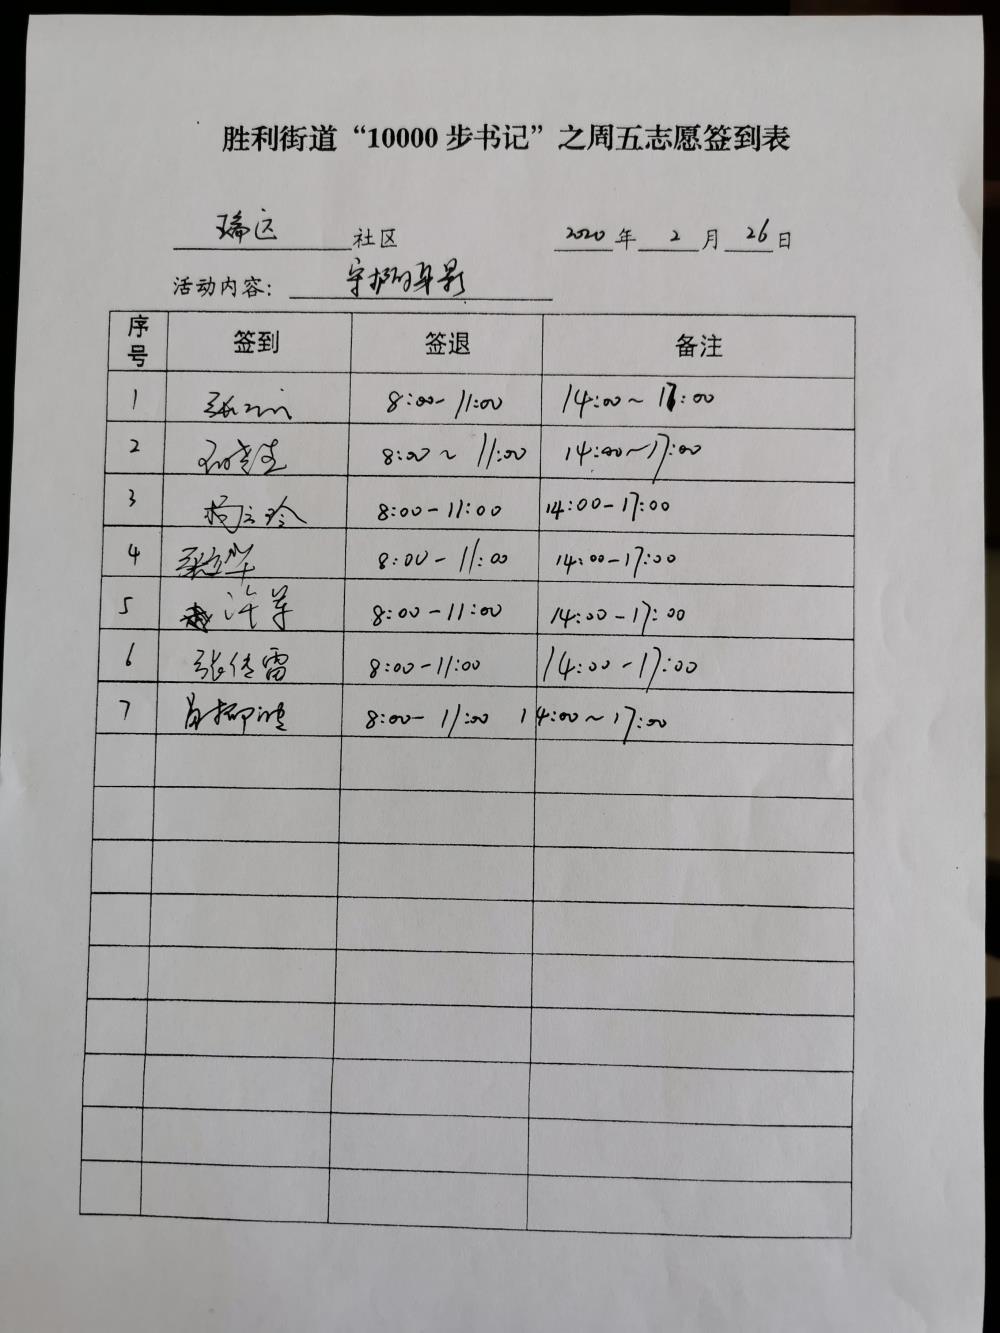 胜利街道“10000步书记”之周五志愿签到表
瑞达 社区 2020年2月26日
活动内容：守护的身影
序号 签到 签退 备注
1 8:00-11:00 14:00~17:00
2 8:00~11:00 14:00~17:00
3 杨玉玲 8:00-11:00 14:00-17:00
4 8:00-11:00 14:00-17:00
5 许苹 8:00-11:00 14:00-17:00
6 张传雷 8:00-11:00 14:00-17:00
7 8:00-11:00 14:00~17:00